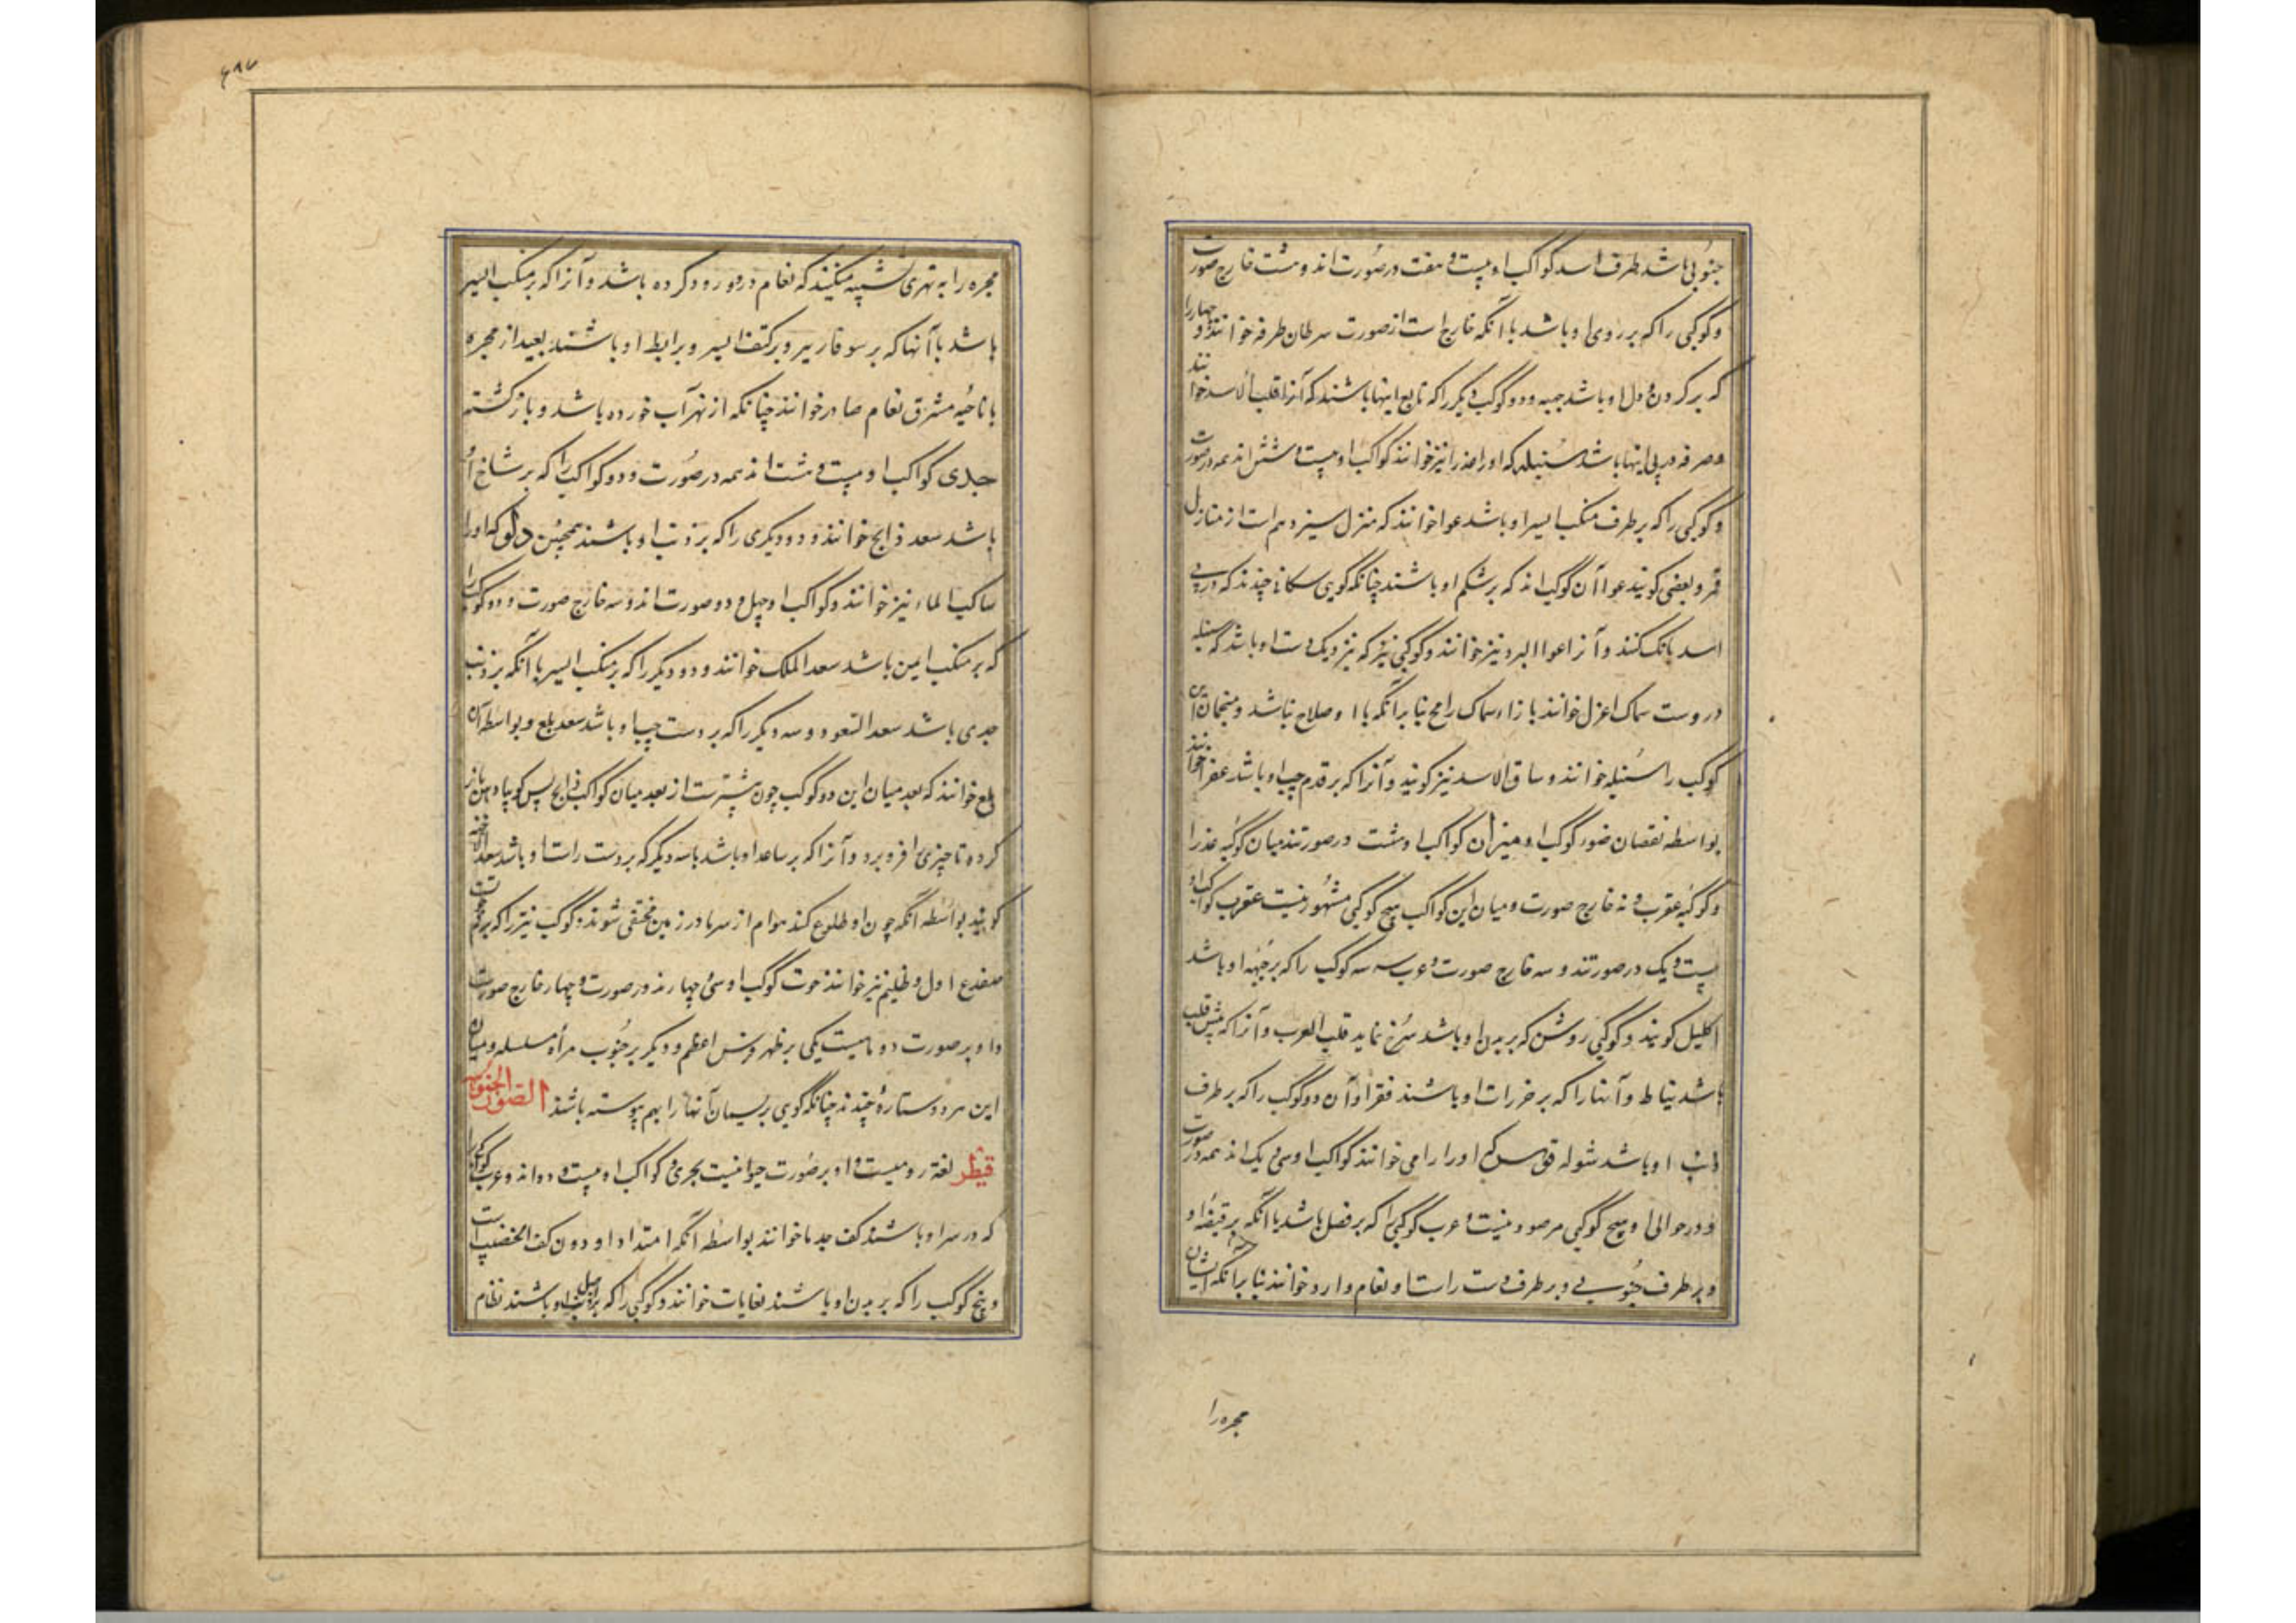 جنوبی باشد طرف اسد کواکب او بیست و هفت در صورت‌اند و هشت خارج صورت
و کوکبی را که بر روی او باشد با آنکه خارج است از صورت سرطان طرفه خوانند و چهار را
که بر کردن و دل او باشد جبهه و دو کوکب دیگر را که تابع اینها باشند که آنرا قلب الاسد خوانند
و صرفه در پی اینها باشد سنبله که او را عذرا نیز خوانند کواکب او بیست و شش‌اند همه در صورت
و کوکبی را که بر طرف منکب ایسر او باشد عوا خوانند که منزل سیزدهم است از منازل
قمر و بعضی کویند عوا آن کوکب‌اند که بر شکم او باشند چنانکه کویی سکانی چندند که در پی
اسد بانک کنند و آنرا عواء البرد نیز خوانند و کوکبی نیز که نزدیک دست او باشد که سنبله
در دست سماک اعزل خوانند بازاء سماک رامح بنا بر آنکه با او صلاح نباشد و منجمان این
کوکب را سنبله خوانند و ساق الاسد نیز کویند و آنرا که بر قدم چپ او باشد غفر خوانند
بواسطه نقصان ضوء کوکب او میزان کواکب او هشت در صورتند میان کوکبه عذرا
و کوکبه عقرب و نه خارج صورت و میان این کواکب هیچ کوکبی مشهور نیست عقرب کواکب او
بیست و یک در صورتند و سه خارج صورت و عرب سه کوکب را که بر جبهه او باشد
اکلیل کویند و کوکبی روشن که بر بدن او باشد سرخ نماید قلب العقرب و آنرا که پیش قلب
باشد نیاط و آنها را که بر خرزات او باشند فقرا و آن دو کوکب را که بر طرف
ذنب او باشد شوله قوس که او را رامی خوانند کواکب او سی و یک‌اند همه در صورت
و در حوالی او هیچ کوکبی مرصود نیست و عرب کوکبی را که بر نصل باشد با آنکه بر قبضه او
و بر طرف جنوبی و بر طرف دست راست او نعام وارد خوانند بنا بر آنکه ایشان
مجره را
۶۹۷
مجره را به نهری تشبیه میکنند که نعام در او ورود کرده باشد و آنرا که بر منکب ایسر
باشد با آنها که بر سوفار تیر و بر کتف ایسر و بر ابط او باشند بعید از مجره
با ناحیه مشرق نعام صادر خوانند چنانکه از نهر آب خورده باشد و باز کشته
جدی کواکب او بیست و هشت‌اند همه در صورت و دو کواکب را که بر شاخ او
باشد سعد ذابح خوانند و دو دیکری را که بر ذنب او باشند محبین دلو که او را
ساکب الماء نیز خوانند و کواکب او چهل و دو صورت‌اند و سه خارج صورت و دو کوکب را
که بر منکب ایمن باشد سعد الملک خوانند و دو دیکر را که بر منکب ایسر با آنکه بر ذنب
جدی باشد سعد السعود و سه دیکر را که بر دست چپ او باشد سعد بلع و بواسطه آن
بلع خوانند که بعد میان این دو کوکب چون بیشتر است از بعد میان کواکب ذابح پس کویا دهن باز
کرده تا چیزی فرو برد و آنرا که بر ساعد او باشد با سه دیکر که بر دست راست او باشد سعد الاخبیه
کویند بواسطه آنکه چون او طلوع کند هوام از سرما در زمین مختفی شوند و کوکب نیز را که بر فم حوت
ضفدع اول و ظلیم نیز خوانند حوت کوکب او سی و چهارند در صورت و چهار خارج صورت
و او بر صورت دو ماهیست یکی بر ظهر فرس اعظم و دیکر بر جنوب مرأه مسلسله و میان
این هر دو ستارهٔ چندند چنانکه کویی ریسمان آنها را بهم پیوسته باشند الصور الجنوبیه
قیطس لغة رومیست و او بر صورت حیوانیست بحری و کواکب او بیست و دواند و عرب کوکبی را
که در سر او باشند کف جذما خوانند بواسطه آنکه امتداد او دون کف الخضیب است
و پنج کوکب را که بر بدن او باشند نعامات خوانند و کوکبی را که بر اصل ذنب او باشند نظام